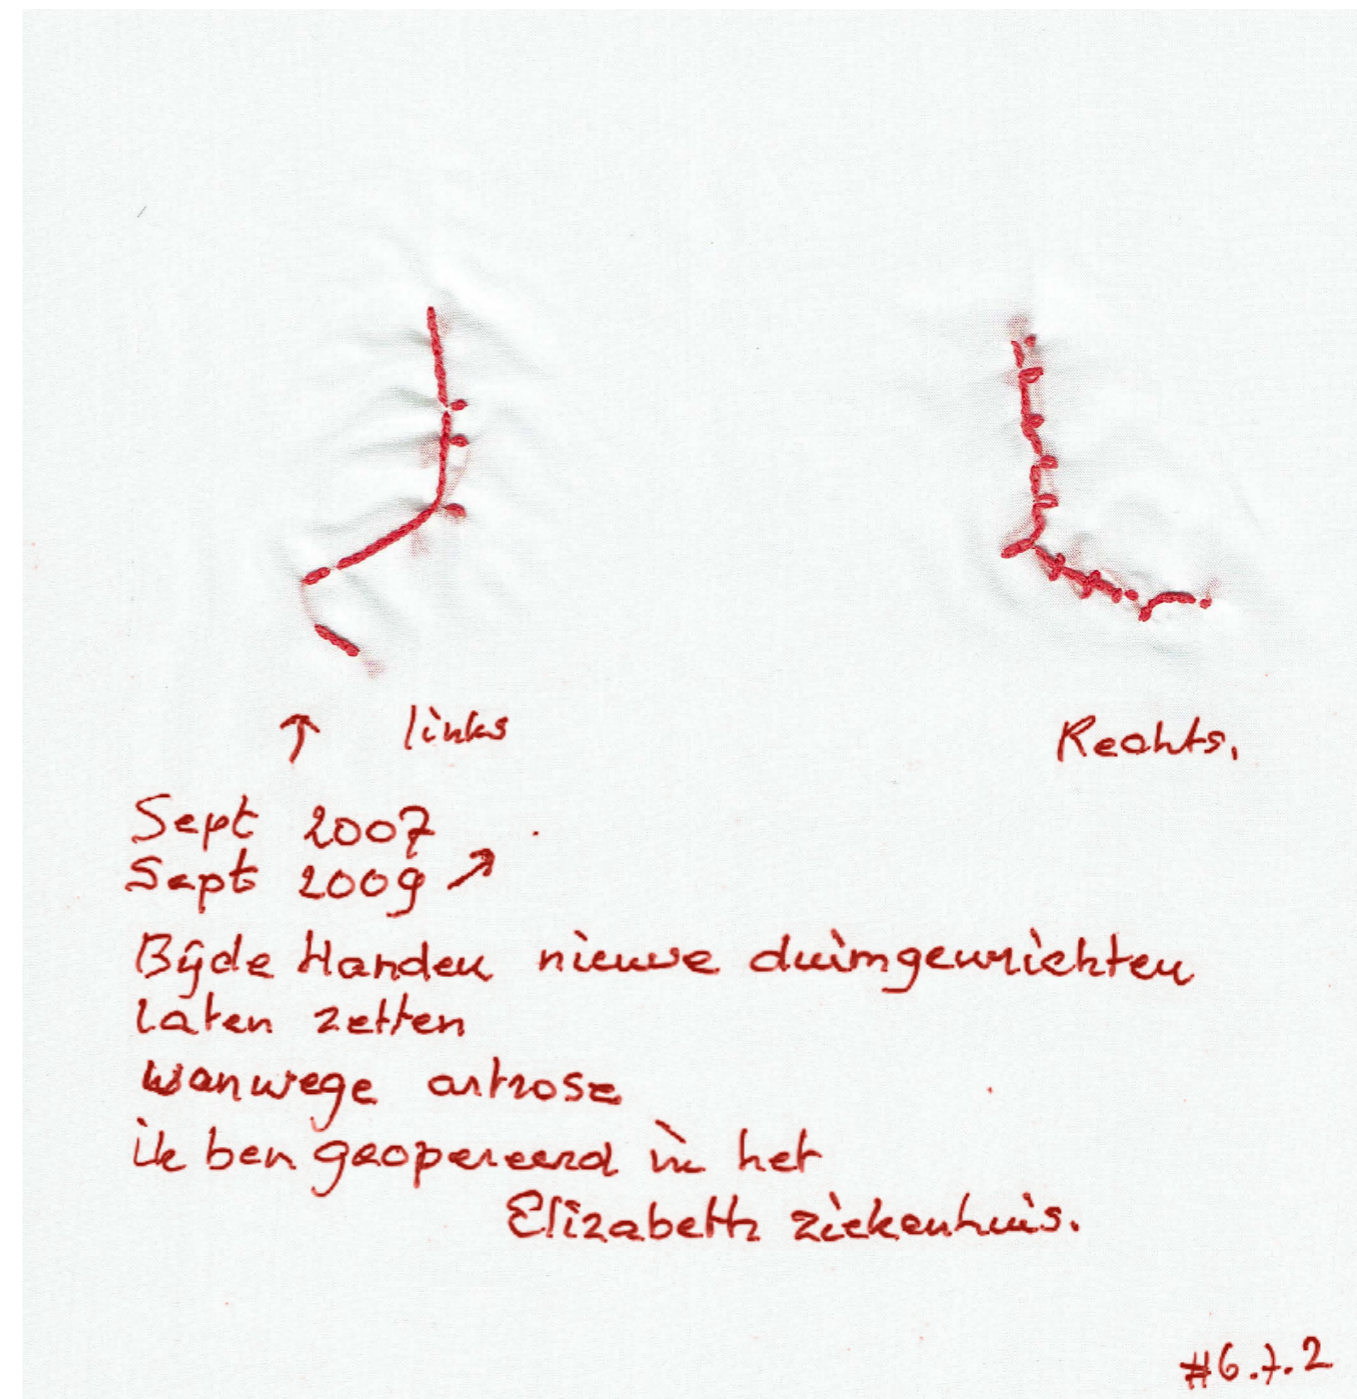 ↑ links Rechts.
Sept 2007
Sept 2009 ↗
Bijde Handen nieuwe duimgewrichten
laten zetten
wanwege artrose
ik ben geopereerd in het
Elizabeth ziekenhuis.
#6.7.2